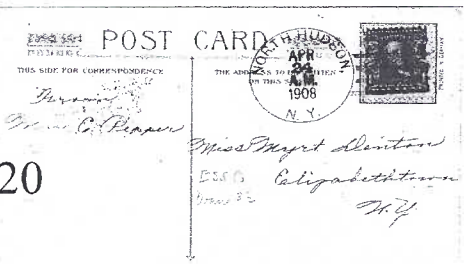 POST CARD
THIS SIDE FOR CORRESPONDENCE
THE ADDRESS TO BE WRITTEN
ON THIS
NORTH HUDSON,
APR
24
A.M.
1908
N. Y.
From
C. Pepper
20
Miss Myrt Denton
Elizabethtown
N.Y.